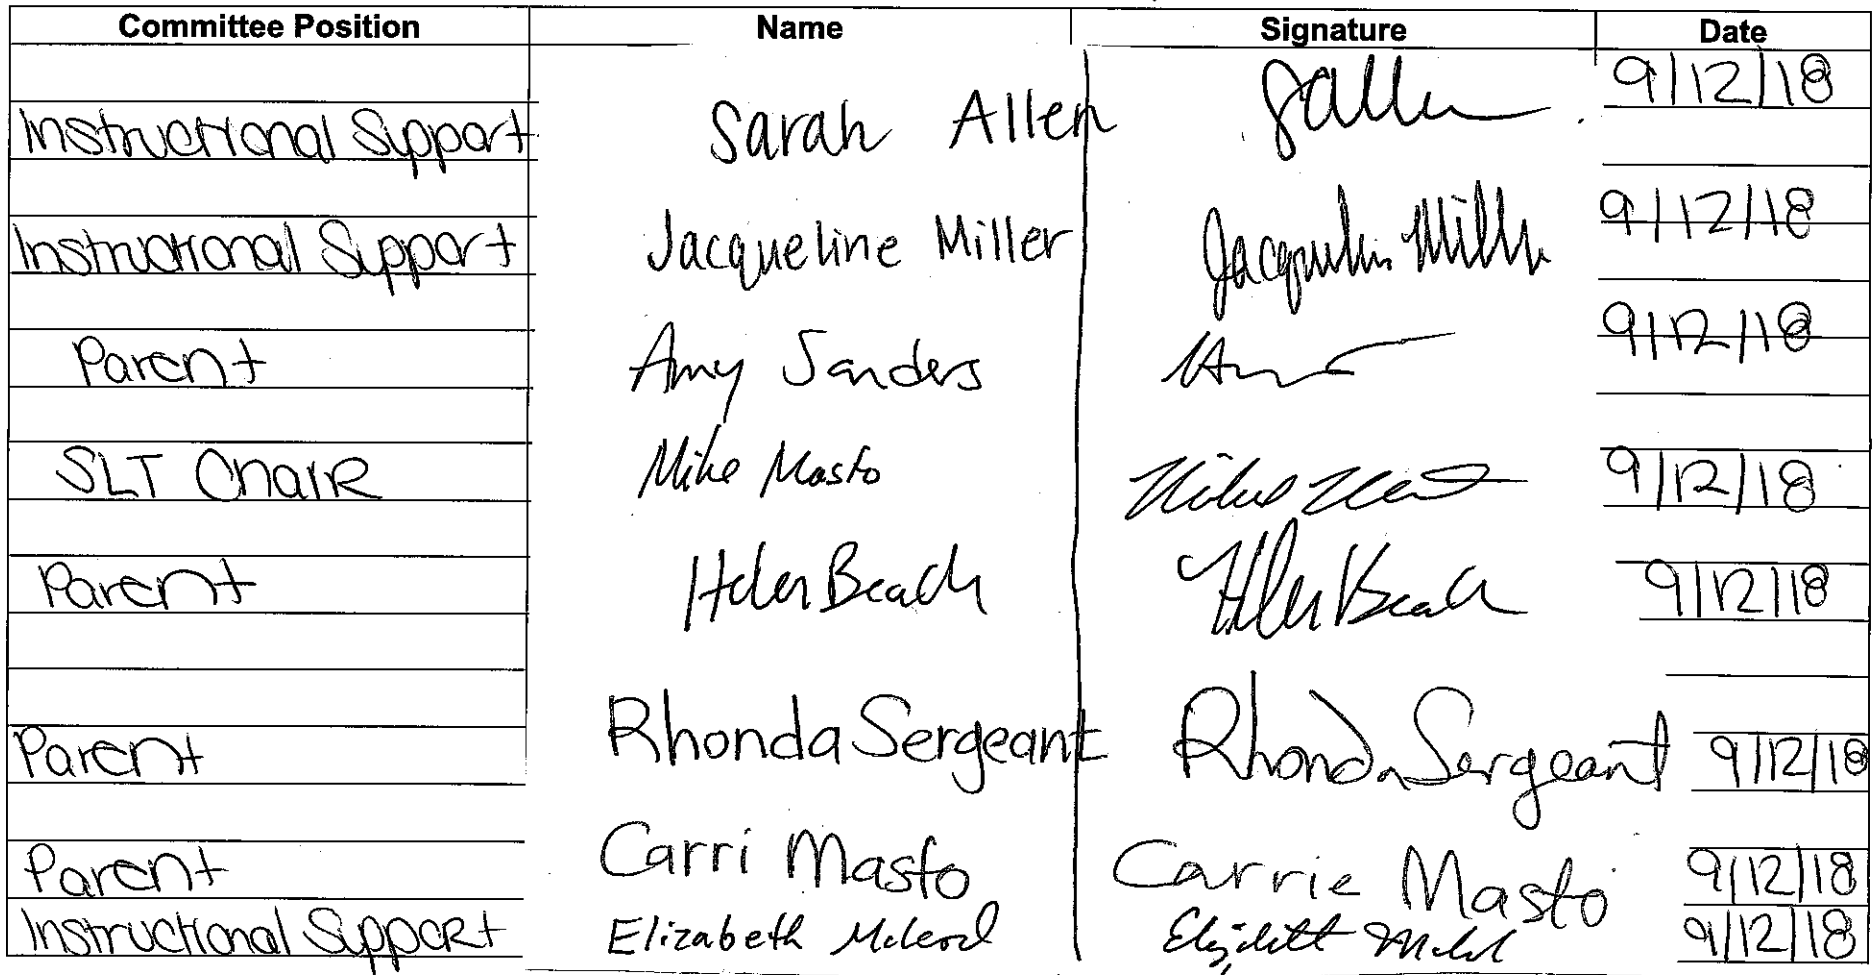 Committee Position Name Signature Date
Instructional Support Sarah Allen SAlle 9/12/18
Instructional Support Jacqueline Miller Jacqueline Miller 9/12/18
Parent Amy Sanders 9/12/18
SLT Chair Mike Masto 9/12/18
Parent Helen Beach Helen Beach 9/12/18
Parent Rhonda Sergeant Rhonda Sergeant 9/12/18
Parent Carri Masto Carrie Masto 9/12/18
Instructional Support Elizabeth McLeod 9/12/18